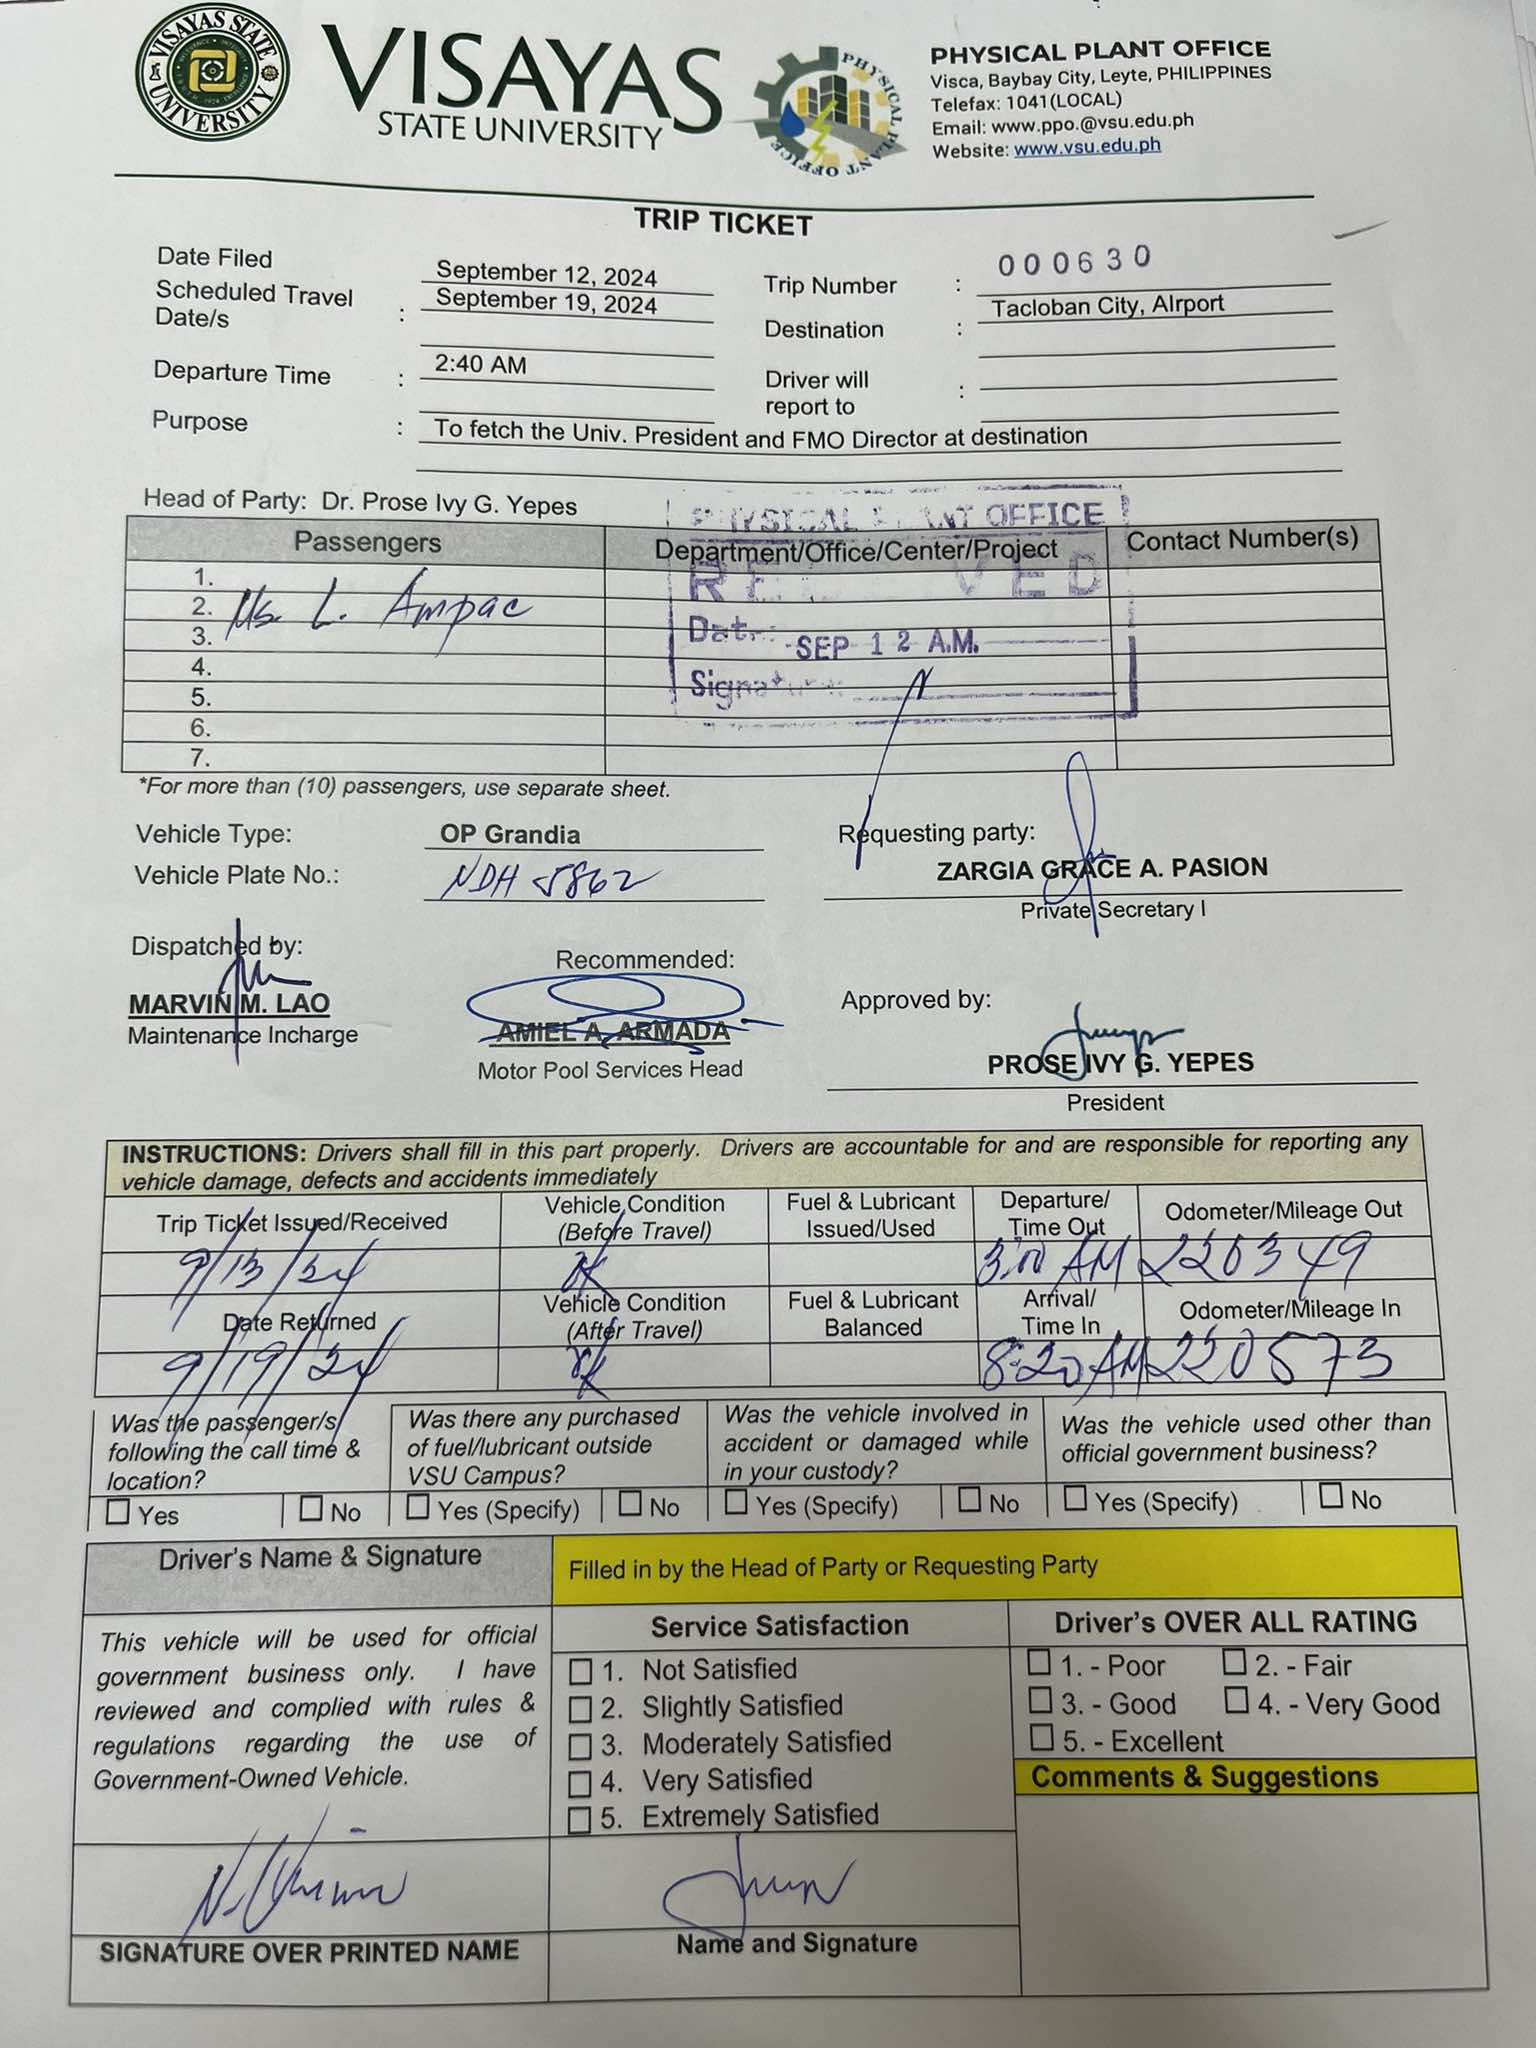 VISAYAS STATE UNIVERSITY
VISAYAS
STATE UNIVERSITY
PHYSICAL PLANT OFFICE
PHYSICAL PLANT OFFICE
Visca, Baybay City, Leyte, PHILIPPINES
Telefax: 1041(LOCAL)
Email: www.ppo.@vsu.edu.ph
Website: www.vsu.edu.ph
TRIP TICKET
Date Filed September 12, 2024 Trip Number : 000630
Scheduled Travel Date/s : September 19, 2024 Destination : Tacloban City, AIrport
Departure Time : 2:40 AM Driver will report to :
Purpose : To fetch the Univ. President and FMO Director at destination
Head of Party: Dr. Prose Ivy G. Yepes
PHYSICAL PLANT OFFICE
Passengers Department/Office/Center/Project Contact Number(s)
1.
2. Ms. L. Ampac
3.
4.
5.
6.
7.
RE VED
Date: SEP 12 A.M.
Signature:
*For more than (10) passengers, use separate sheet.
Vehicle Type: OP Grandia Requesting party:
Vehicle Plate No.: NDH 5862 ZARGIA GRACE A. PASION
Private Secretary I
Dispatched by: Recommended: Approved by:
MARVIN M. LAO AMIEL A. ARMADA PROSE IVY G. YEPES
Maintenance Incharge Motor Pool Services Head President
INSTRUCTIONS: Drivers shall fill in this part properly. Drivers are accountable for and are responsible for reporting any
vehicle damage, defects and accidents immediately
Trip Ticket Issued/Received Vehicle Condition (Before Travel) Fuel & Lubricant Issued/Used Departure/ Time Out Odometer/Mileage Out
9/13/24 OK 3:00 AM 220349
Date Returned Vehicle Condition (After Travel) Fuel & Lubricant Balanced Arrival/ Time In Odometer/Mileage In
9/19/24 OK 8:20 AM 220573
Was the passenger/s following the call time & location? Was there any purchased of fuel/lubricant outside VSU Campus? Was the vehicle involved in accident or damaged while in your custody? Was the vehicle used other than official government business?
☐ Yes ☐ No ☐ Yes (Specify) ☐ No ☐ Yes (Specify) ☐ No ☐ Yes (Specify) ☐ No
Driver's Name & Signature Filled in by the Head of Party or Requesting Party
This vehicle will be used for official
government business only. I have
reviewed and complied with rules &
regulations regarding the use of
Government-Owned Vehicle.
Service Satisfaction
☐ 1. Not Satisfied
☐ 2. Slightly Satisfied
☐ 3. Moderately Satisfied
☐ 4. Very Satisfied
☐ 5. Extremely Satisfied
Driver's OVER ALL RATING
☐ 1. - Poor ☐ 2. - Fair
☐ 3. - Good ☐ 4. - Very Good
☐ 5. - Excellent
Comments & Suggestions
SIGNATURE OVER PRINTED NAME Name and Signature